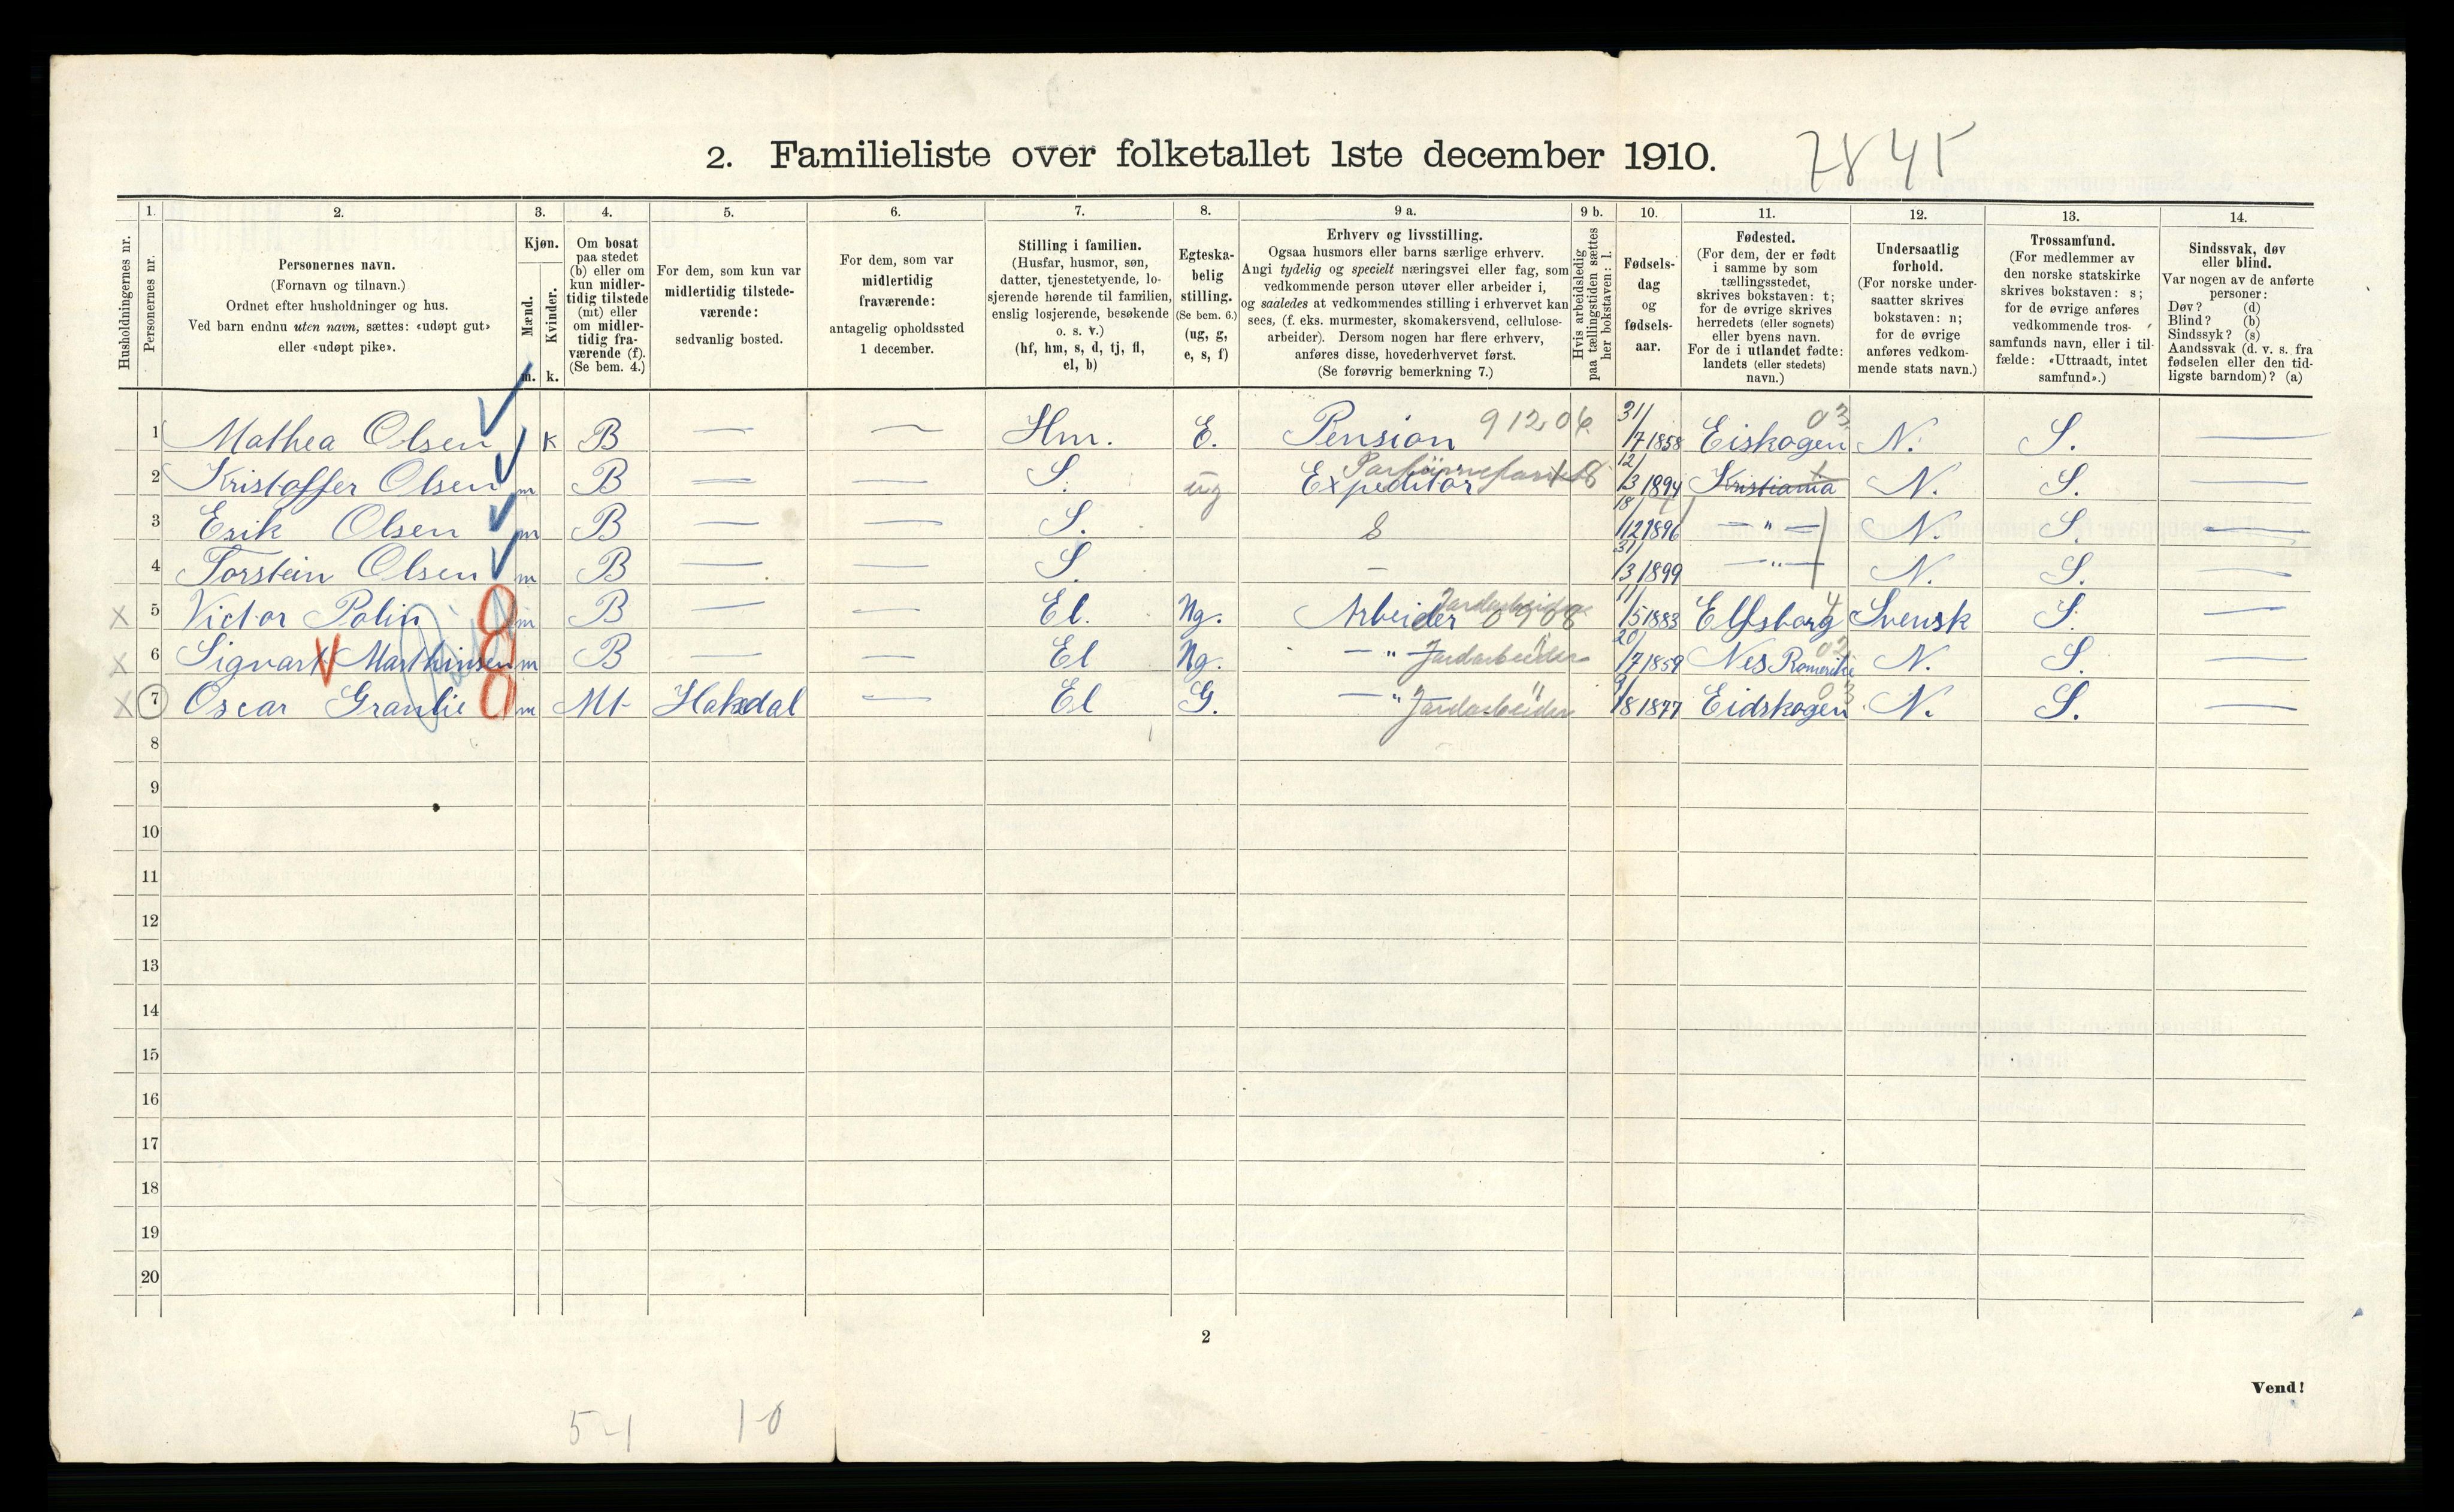 2. Familieliste over folketallet 1ste december 1910. 7845
Husholdningernes nr.
1. Personernes nr.
2. Personernes navn.
(Fornavn og tilnavn.)
Ordnet efter husholdninger og hus.
Ved barn endnu uten navn, sættes: «udøpt gut»
eller «udøpt pike».
3. Kjøn.
Mænd. m.
Kvinder. k.
4. Om bosat
paa stedet
(b) eller om
kun midler-
tidig tilstede
(mt) eller
om midler-
tidig fra-
værende (f).
(Se bem. 4.)
5. For dem, som kun var
midlertidig tilstede-
værende:
sedvanlig bosted.
6. For dem, som var
midlertidig
fraværende:
antagelig opholdssted
1 december.
7. Stilling i familien.
(Husfar, husmor, søn,
datter, tjenestetyende, lo-
sjerende hørende til familien,
enslig losjerende, besøkende
o. s. v.)
(hf, hm, s, d, tj, fl,
el, b)
8. Egteska-
belig
stilling.
(Se bem. 6.)
(ug, g,
e, s, f)
9 a. Erhverv og livsstilling.
Ogsaa husmors eller barns særlige erhverv.
Angi tydelig og specielt næringsvei eller fag, som
vedkommende person utøver eller arbeider i,
og saaledes at vedkommendes stilling i erhvervet kan
sees, (f. eks. murmester, skomakersvend, cellulose-
arbeider). Dersom nogen har flere erhverv,
anføres disse, hovederhvervet først.
(Se forøvrig bemerkning 7.)
9 b. Hvis arbeidsledig
paa tællingstiden sættes
her bokstaven: l.
10. Fødsels-
dag
og
fødsels-
aar.
11. Fødested.
(For dem, der er født
i samme by som
tællingsstedet,
skrives bokstaven: t;
for de øvrige skrives
herredets (eller sognets)
eller byens navn.
For de i utlandet fødte:
landets (eller stedets)
navn.)
12. Undersaatlig
forhold.
(For norske under-
saatter skrives
bokstaven: n;
for de øvrige
anføres vedkom-
mende stats navn.)
13. Trossamfund.
(For medlemmer av
den norske statskirke
skrives bokstaven: s;
for de øvrige anføres
vedkommende tros-
samfunds navn, eller i til-
fælde: «Uttraadt, intet
samfund».)
14. Sindssvak, døv
eller blind.
Var nogen av de anførte
personer:
Døv? (d)
Blind? (b)
Sindssyk? (s)
Aandssvak (d. v. s. fra
fødselen eller den tid-
ligste barndom)? (a)
1 Mathea Olsen k B — — Hm. E. Pension 912,06 31/7 1858 Eiskogen 03 N. S. —
2 Kristoffer Olsen m B — — S. ug Expeditør 12/3 1894 Kristiania t N. S. —
3 Erik Olsen m B — — S. S 18/12 1896 —"— N. S. —
4 Torstein Olsen m B — — S. — 31/3 1899 —"— N. S. —
X 5 Victor Polin m B — — El. Ug. Arbeider Jordarbeider 0908 11/5 1883 Elfsborg 4 Svensk S. —
X 6 Sigvart Marthinsen m B — — El Ug. —"— Jordarbeider 20/7 1859 Nes Romerike 02 N. S. —
X 7 Oscar Granlie m Mt Hakedal — El G. —"— Jordarbeider 9/8 1877 Eidskogen 03 N. S. —
8
9
10
11
12
13
14
15
16
17
18
19
20
2
Vend!
5-1 1-0